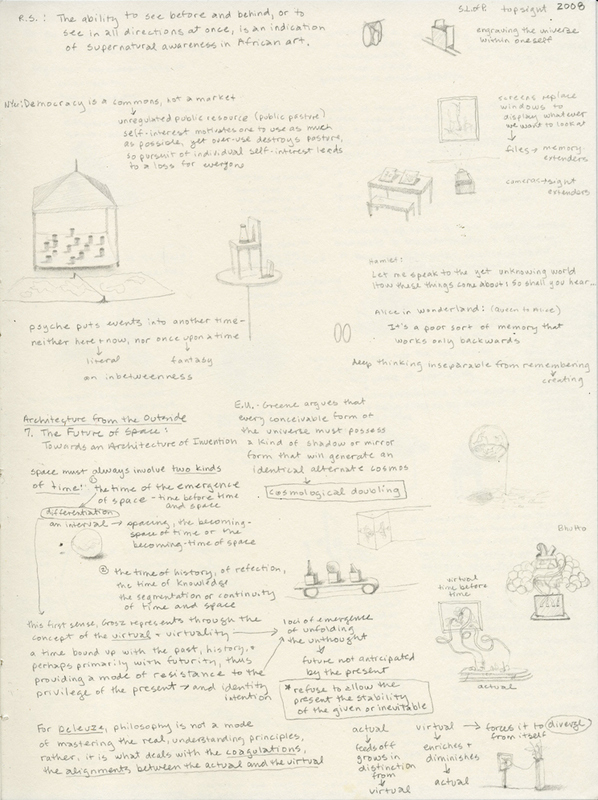 R.S.: The ability to see before and behind, or to
see in all directions at once, is an indication
of supernatural awareness in African art.
topsight 2008
engraving the universe
within oneself
Democracy is a commons, not a market
unregulated public resource (public pasture)
self-interest motivates one to use as much
as possible, yet over-use destroys pasture,
so pursuit of individual self-interest leads
to a loss for everyone
screens replace
windows to
display whatever
we want to look at
files → memory
extenders
cameras → sight
extenders
Hamlet:
Let me speak to the yet unknowing world
How these things come about; so shall you hear...
Alice in Wonderland: (Queen to Alice)
It's a poor sort of memory that
works only backwards
deep thinking inseparable from remembering
creating
psyche puts events into another time-
neither here + now, nor once upon a time
literal fantasy
an inbetweenness
E.U.- Greene argues that
every conceivable form of
the universe must possess
a kind of shadow or mirror
form that will generate an
identical alternate cosmos
cosmological doubling
Architecture from the Outside
7. The Future of Space:
Towards an Architecture of Invention
space must always involve two kinds
of time:
① the time of the emergence
of space - time before time
and space
differentiation
an interval → spacing, the becoming-
space of time or the
becoming-time of space
② the time of history, of reflection,
the time of knowledge
the segmentation or continuity
of time and space
Bhutto
virtual
time before
time
actual
this first sense, Grosz represents through the
concept of the virtual + virtuality
a time bound up with the past, history, +
perhaps primarily with futurity, thus
providing a mode of resistance to the
privilege of the present → and identity
intention
loci of emergence
of unfolding
the unthought
future not anticipated
by the present
* refuse to allow the
present the stability
of the given or inevitable
For Deleuze, philosophy is not a mode
of mastering the real, understanding principles,
rather, it is what deals with the coagulations,
the alignments between the actual and the virtual
actual
feeds off
grows in
distinction
from
virtual
virtual → forces it to diverge
from itself
enriches +
diminishes
actual